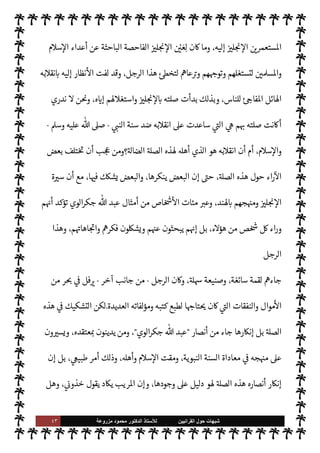 المستعمرين الإنجليز إليه، وما كان لعين الإنجليز الفاحصة الباحثة عن أعداء الإسلام
والمسلمين لتستغلهم وتوجههم وترعاهم لتخطئ هذا الرجل، وقد لفت الأنظار إليه بانقلابه
الهائل المفاجئ للناس، وبذلك بدأت صلته بالإنجليز واستغلالهم إياه، ونحن لا ندري
أكانت صلته بهم هي التي ساعدت على انقلابه ضد سنة النبي - صلى الله عليه وسلم -
والإسلام، أم أن انقلابه هو الذي أهله لهذه الصلة الضالة؟ومن عجب أن تختلف بعض
الآراء حول هذه الصلة، حتى إن البعض ينكرها، والبعض يشكك فيها، مع أن سيرة
الإنجليز ومنهجهم بالهند، وعبر مئات الأشخاص من أمثال عبد الله جكرالوي تؤكد أنهم
وراء كل شخص من هؤلاء، بل إنهم يبحثون عنهم ويشكلون فكرهم واتجاهاتهم، وهذا
الرجل
جاءهم لقمة سائغة، وصنيعة سهلة، وكان الرجل - من جانب آخر - يرفل في بحر من
الأموال والنفقات التي كان يحتاجها لطبع كتبه ومؤلفاته العديدة.لكن التشكيك في هذه
الصلة بل إنكارها جاء من أنصار "عبد الله جكرالوي"، ومن يدينون بمعتقده، ويسيرون
على منهجه في معاداة السنة النبوية، ومقت الإسلام وأهله، وذلك أمر طبيعي، بل إن
إنكار أنصاره هذه الصلة لهو دليل على وجودها، وإن المريب يكاد يقول خذوني، وهل
شبهات حول القرآنيين للأستاذ الدكتور محمود مزروعة ٤٣